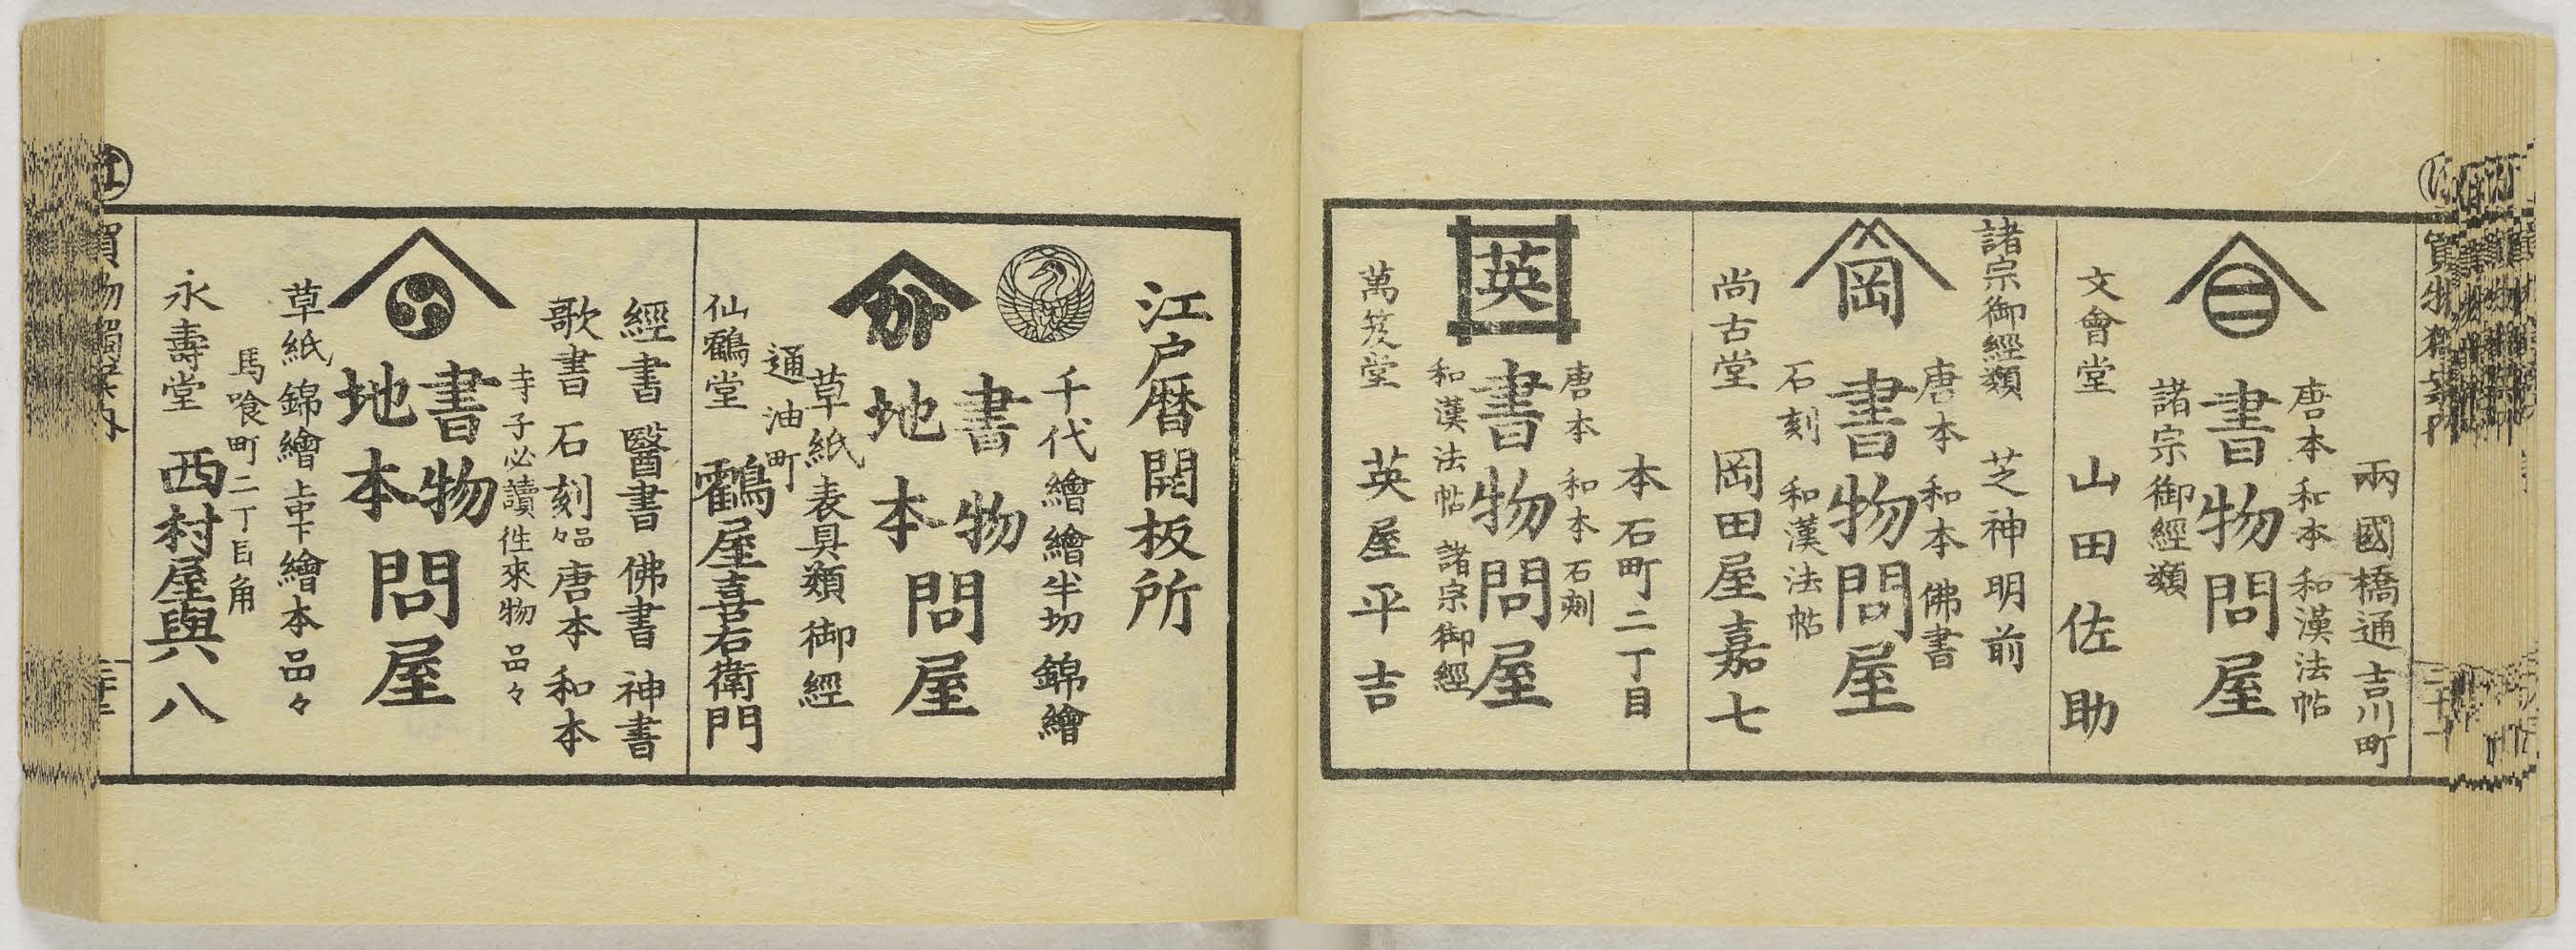 兩國橋通吉川町
唐本 和本 和漢法帖
三
書物問屋
諸宗御經類
文會堂 山田佐助
諸宗御經類 芝神明前
唐本 和本 佛書
岡
書物問屋
石刻 和漢法帖
尚古堂 岡田屋嘉七
本石町二丁目
唐本 和本 石刻
英
書物問屋
和漢法帖 諸宗御經
萬笈堂 英屋平吉
江戸暦開板所
千代繪 繪半切 錦繪
書物
地本
問屋
草紙 表具類 御經
通油町
仙鶴堂 鶴屋喜右衛門
經書 醫書 佛書 神書
歌書 石刻品々 唐本 和本
寺子必讀徃來物 品々
書物
地本
問屋
草紙 錦繪 上中下 繪本品々
馬喰町二丁目角
永壽堂 西村屋與八